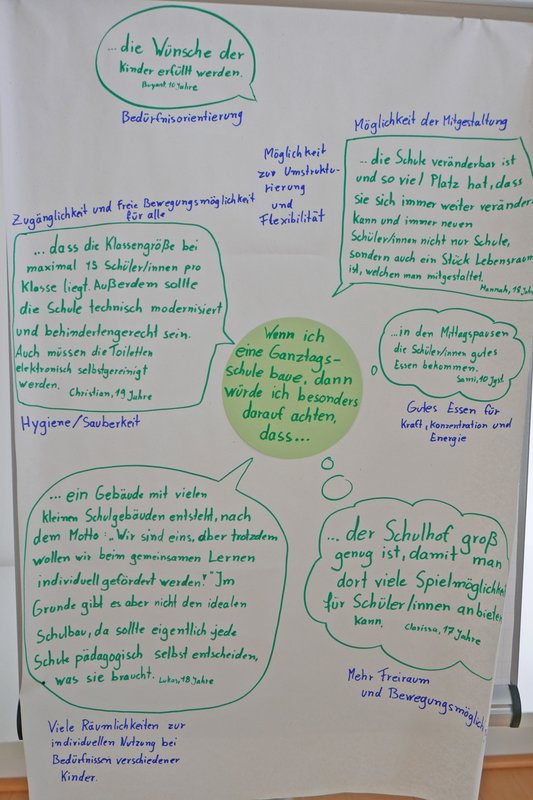 ... die Wünsche der
Kinder erfüllt werden.
10 Jahre
Bedürfnisorientierung
Möglichkeit der Mitgestaltung
... die Schule veränderbar ist
und so viel Platz hat, dass
sie sich immer weiter veränder
kann und immer neuen
Schüler/innen nicht nur Schule,
sondern auch ein Stück Lebensraum
ist, welchen man mitgestaltet.
Hannah, 18 Jahr
Möglichkeit
zur Umstruktu-
rierung
und
Flexibilität
Zugänglichkeit und freie Bewegungsmöglichkeit
für alle
... dass die Klassengröße bei
maximal 15 Schüler/innen pro
Klasse liegt. Außerdem sollte
die Schule technisch modernisiert
und behindertengerecht sein.
Auch müssen die Toiletten
elektronisch selbstgereinigt
werden. Christian, 19 Jahre
Hygiene/Sauberkeit
Wenn ich
eine Ganztags-
schule baue, dann
würde ich besonders
darauf achten,
dass...
...in den Mittagspausen
die Schüler/innen gutes
Essen bekommen.
Sami, 10 Jgst.
Gutes Essen für
Kraft, Konzentration und
Energie
... ein Gebäude mit vielen
kleinen Schulgebäuden entsteht, nach
dem Motto: „Wir sind eins, aber trotzdem
wollen wir beim gemeinsamen Lernen
individuell gefördert werden!" Im
Grunde gibt es aber nicht den idealen
Schulbau, da sollte eigentlich jede
Schule pädagogisch selbst entscheiden,
was sie braucht. Lukas, 18 Jahre
Viele Räumlichkeiten zur
individuellen Nutzung bei
Bedürfnissen verschiedener
Kinder.
... der Schulhof groß
genug ist, damit man
dort viele Spielmöglichkei
für Schüler/innen anbieten
kann. Clarissa, 17 Jahre
Mehr Freiraum
und Bewegungsmöglich